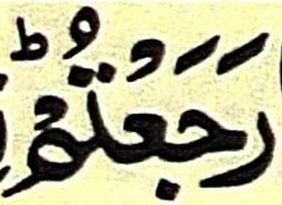 رَجَعْتُمْؕ